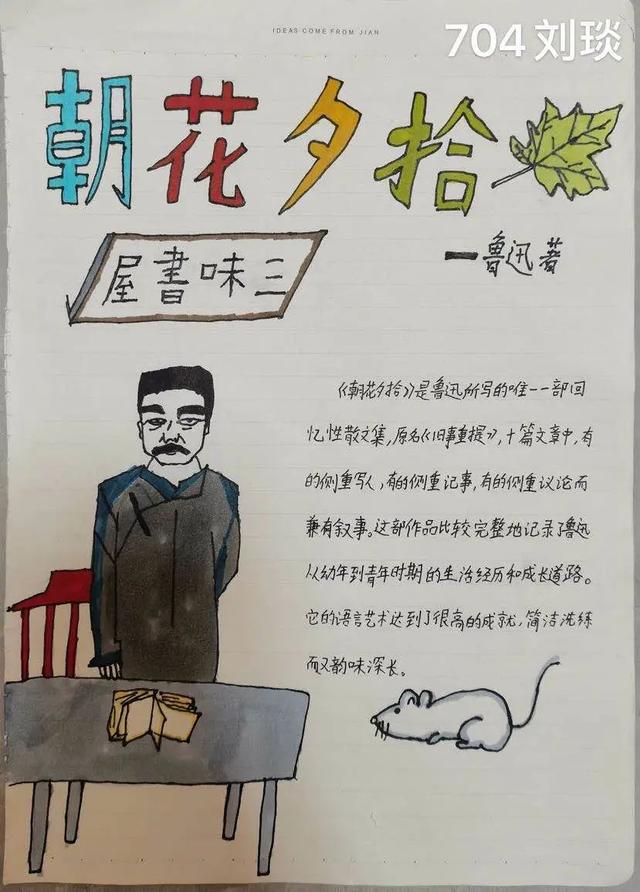 IDEAS COME FROM JIAN
704 刘琰
朝花夕拾
一鲁迅著
屋書味三
《朝花夕拾》是鲁迅所写的唯一一部回
忆性散文集,原名《旧事重提》,十篇文章中,有
的侧重写人,有的侧重记事,有的侧重议论而
兼有叙事。这部作品比较完整地记录了鲁迅
从幼年到青年时期的生活经历和成长道路。
它的语言艺术达到了很高的成就,简洁洗练
而又韵味深长。